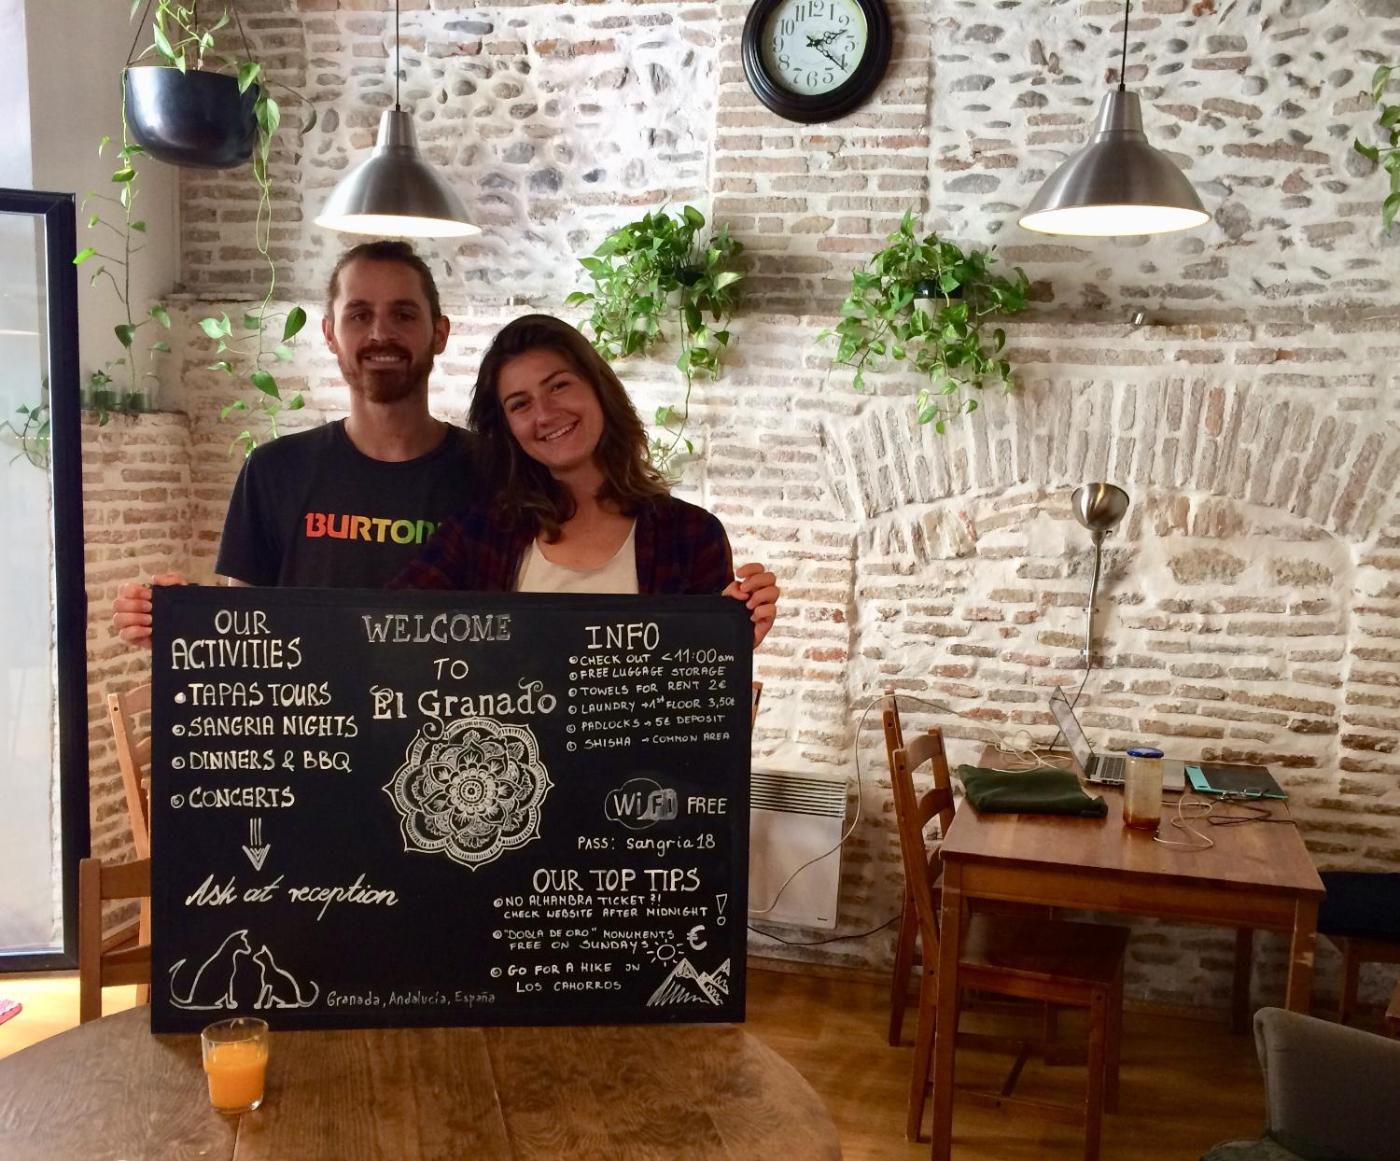 12
11
1
10
2
9
3
8
7
6
5
BURTON
OUR
ACTIVITIES
TAPAS TOURS
SANGRIA NIGHTS
DINNERS & BBQ
CONCERTS
Ask at reception
WELCOME
TO
El Granado
INFO
CHECK OUT <11:00am
FREE LUGGAGE STORAGE
TOWELS FOR RENT 2€
LAUNDRY →1st FLOOR 3,50€
PADLOCKS → 5€ DEPOSIT
SHISHA → COMMON AREA
WiFi FREE
PASS: sangria18
OUR TOP TIPS
NO ALHAMBRA TICKET?!
CHECK WEBSITE AFTER MIDNIGHT !
"DOBLA DE ORO" MONUMENTS €
FREE ON SUNDAYS
GO FOR A HIKE IN
LOS CAHORROS
Granada, Andalucía, España